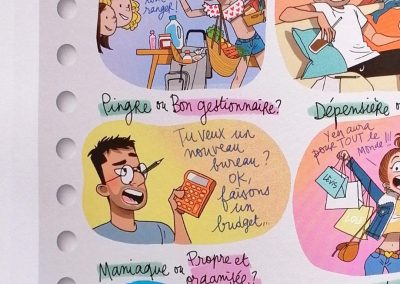 ranger!
Pingre ou Bon gestionnaire?
Dépensière o
Tu veux un
nouveau
bureau?
OK,
faisons
un
budget...
Y en aura
pour TOUT le
Monde!!!
Maniaque ou Propre et
organisée?